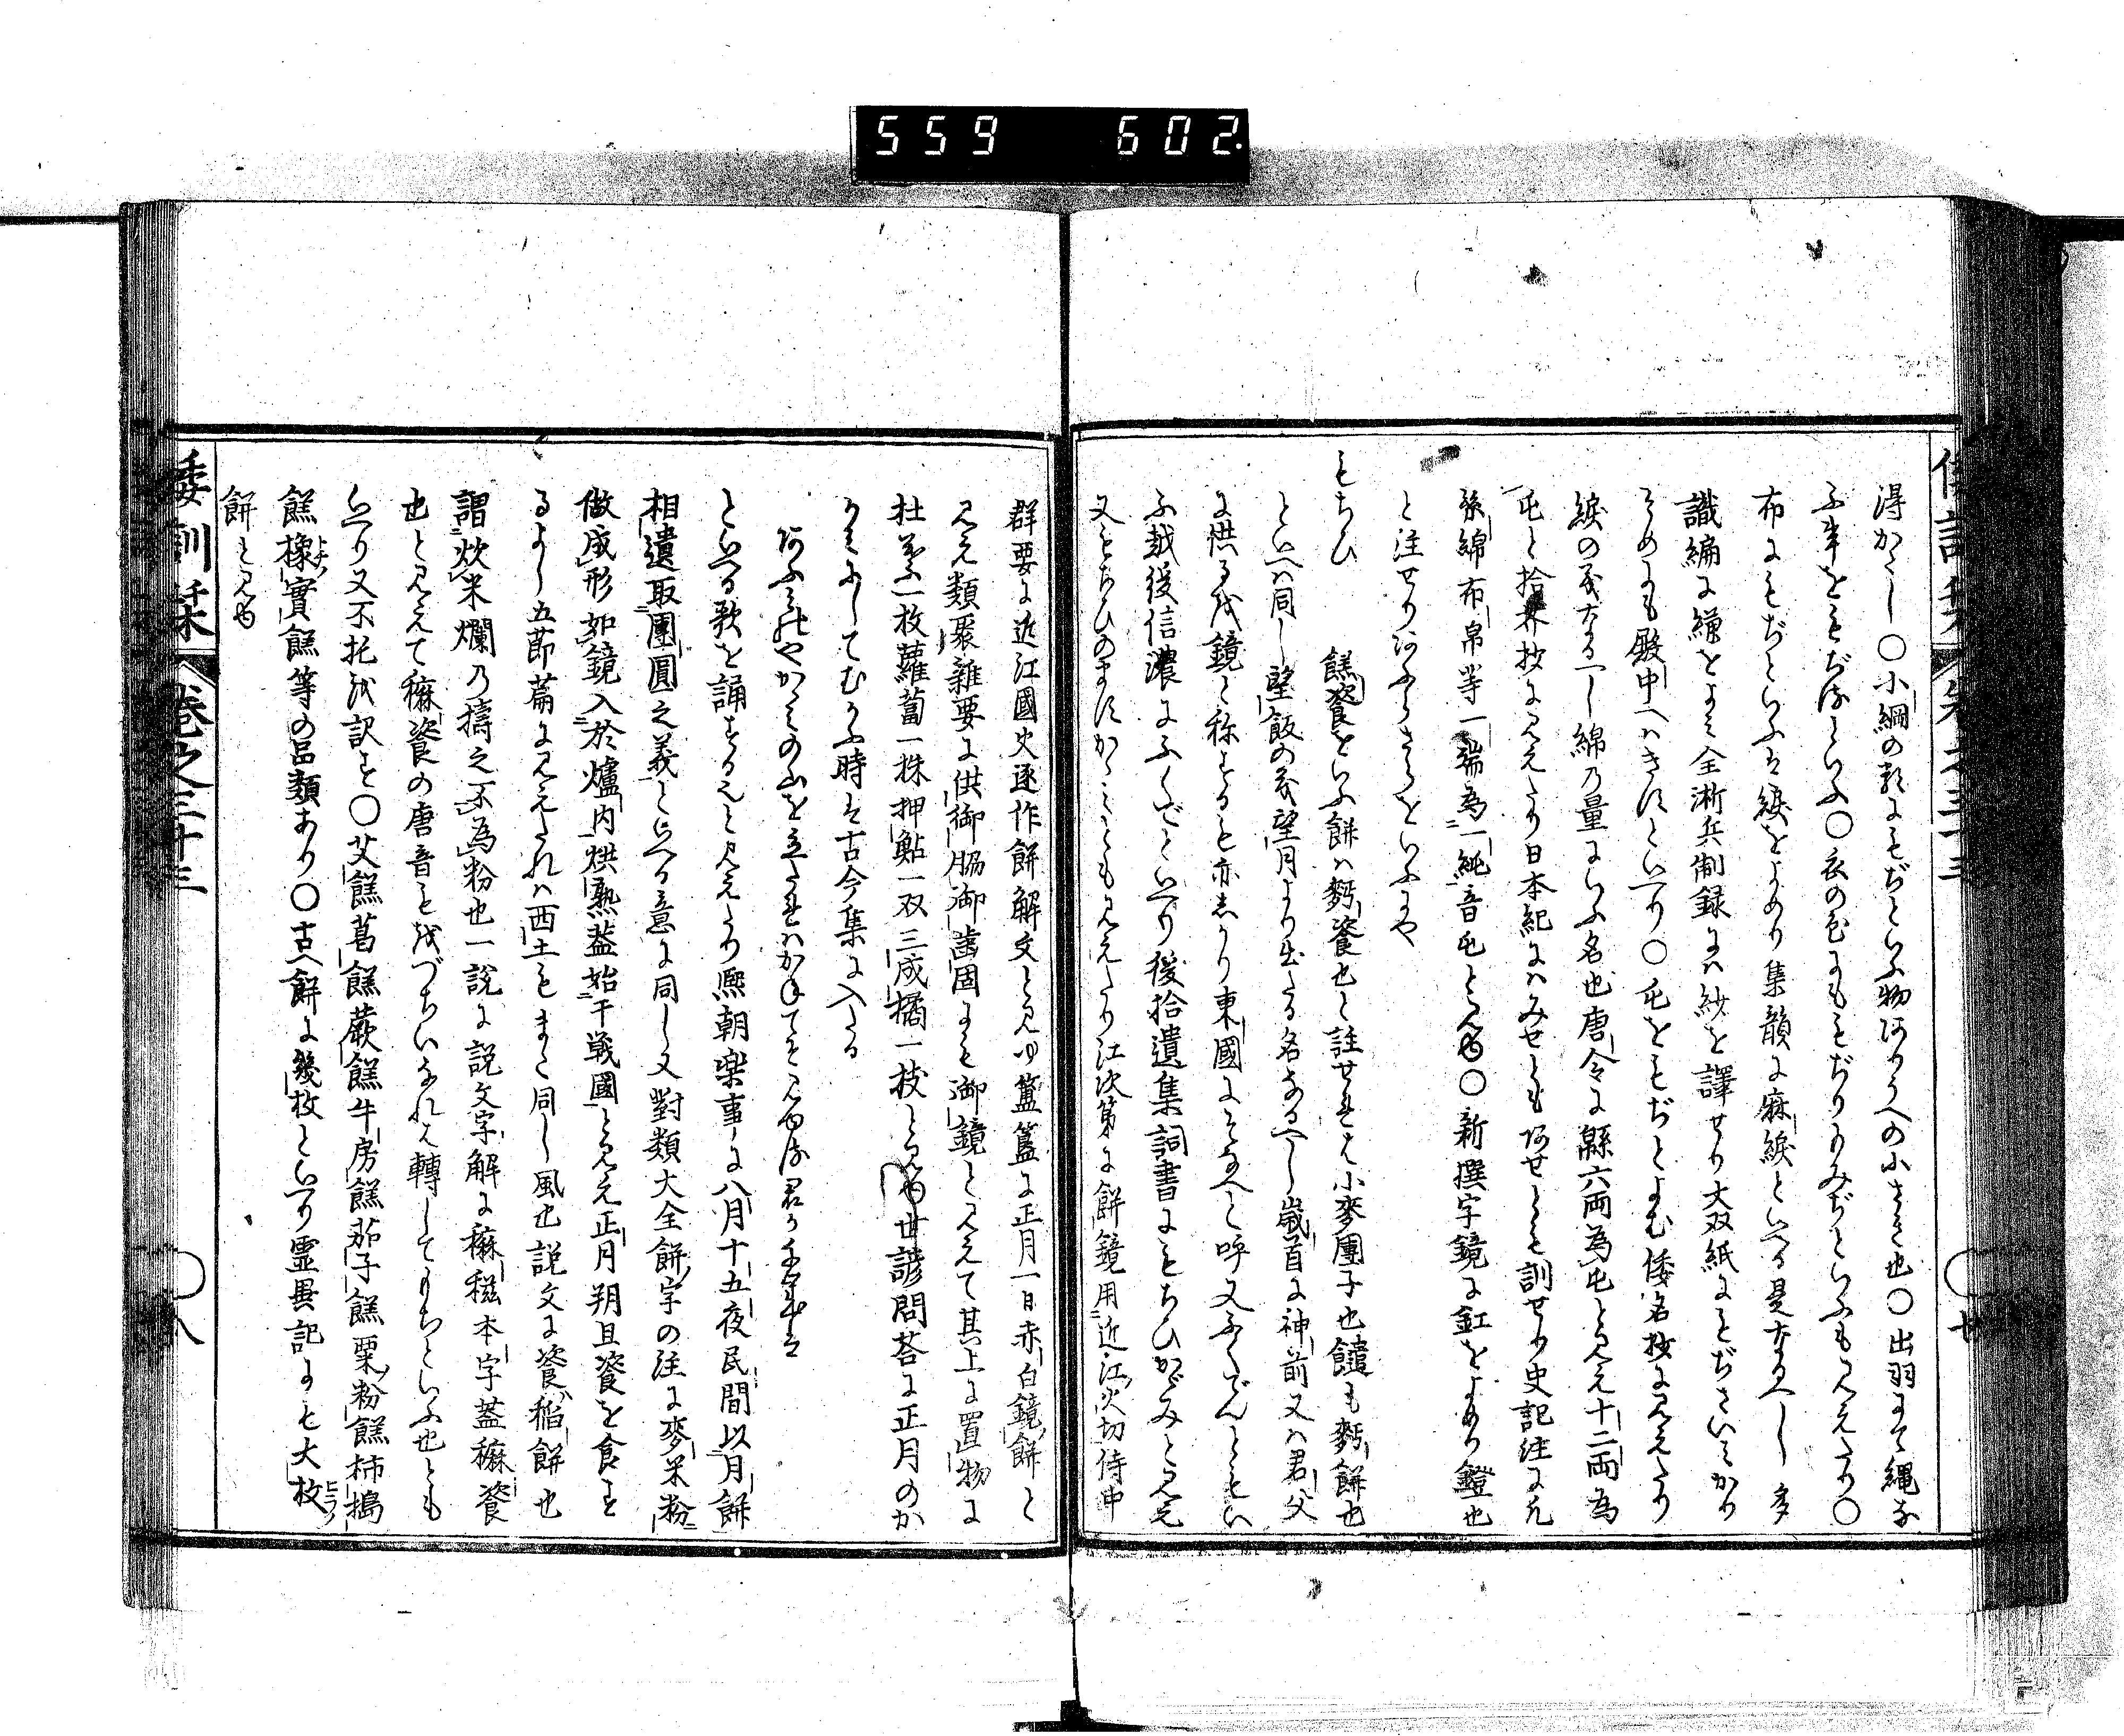 559 602
得かたし〇小綱の類にもぢといふ物ありうへの小きき也〇出羽にて縄な
ふ事をもぢるといふ〇衣の色にももぢりにみぢといふも見えたり〇
布にもぢといふは綟をよめり集韻に麻綟といへる是なるへし 多
識編に繒をよみ全浙兵制録には紗を譯せり大双紙にもぢさいみかり
そめにも殿中へはきすといへり〇屯をもぢとよむ倭名抄に見えたり
綟の義なるへし綿の量にいふ名也唐令に緜六両為屯と見え十二両為
屯と拾芥抄に見えたり日本紀にはみせとも あせとも訓せり史記注に凡
絲綿布帛等一端為一純音屯と見ゆ〇新撰字鏡に釭をよめり鐙也
と注せりあふらさらをいふにや
もちひ 餻餈をいふ餅は麪餈也と註せれは小麥團子也饐も麪餅也
といへは同し望飯の義望月より出たる名なるへし歳首に神前又は君父
に供るを鏡と称するも亦しかり東國にそなへと呼又ふくでんともい
ふ越後信濃にふくでといへり後拾遺集詞書にもちひかゞみと見え
又もちひのますかゝみとも見えたり江次第に餅鏡用近江火切侍中
群要に近江國火逐作餅解文と見ゆ簠簋に正月一日赤白鏡餅と
見え類聚雑要に供御脇御歯固にも御鏡と見えて其上に置物に
杜葉一枚蘿蔔一株押鮎一双三成橘一枝と見ゆ世諺問荅に正月のか
かみにしてむかふ時は古今集に入たる
あふみのやかゝみの山を立たれはかねてそ見ゆる君か千年は
といへる歌を誦するもと見えたり熈朝樂事に八月十五夜民間以月餅
相遺取團圓之義といへる意に同し又對類大全餅字の注に麥米粉
做成形如鏡入於爐内烘熟蓋始于戦國と見え正月朔旦餈を食す
るより五莭篇に見えたれは西土もまた同し風也説文に餈稲餅也
謂炊米爛乃擣之不為粉也一説に説文字解に䊳糍本字蓋䊳餈
也と見えて䊳餈の唐音もをづちいなれは轉してもちといふ也とも
いへり又不托を訳す〇艾餻葛餻蕨餻牛房餻茄子餻粟粉餻柿搗
餻橡實餻等の品類あり〇古へ餅に幾枚といへり霊異記にも大枚
餅と見ゆ
倭訓栞 巻之三十三 〇八